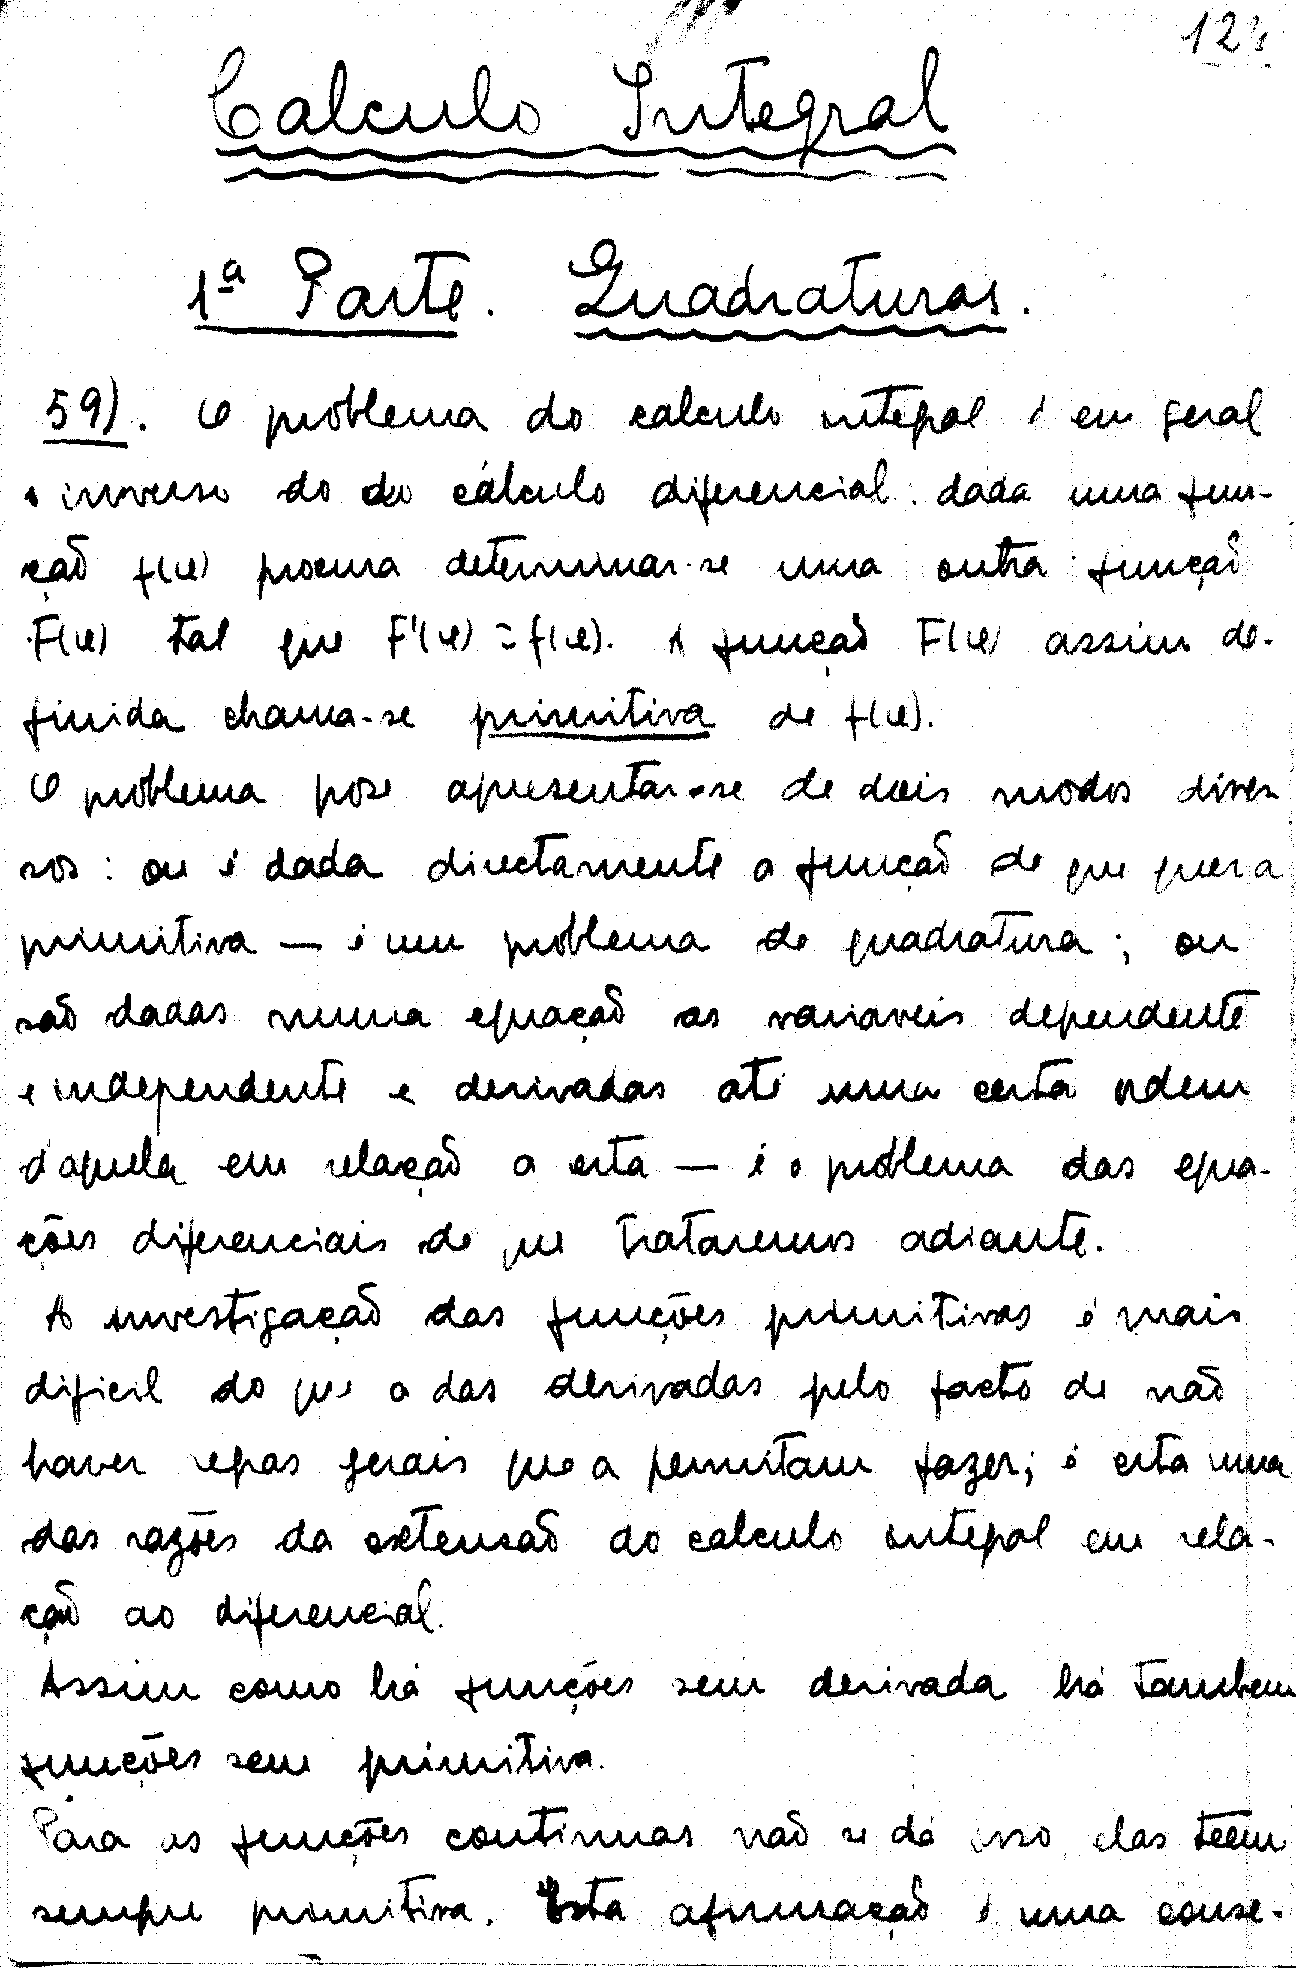 Calculo Integral
1ª Parte. Quadraturas.
59). O problema do calculo integral é em geral
o inverso do do cálculo diferencial: dada uma fun-
ção f(x) procura determinar-se uma outra função
F(x) tal que F'(x) = f(x). A função F(x) assim de-
finida chama-se primitiva de f(x).
O problema pode apresentar-se de dois modos diver-
sos: ou é dada directamente a função de que quer a
primitiva — é um problema de quadratura; ou
são dadas numa equação as variaveis dependente
e independente e derivadas até uma certa ordem
daquela em relação a esta — é o problema das equa-
ções diferenciais de que trataremos adiante.
A investigação das funções primitivas é mais
dificil do que a das derivadas pelo facto de não
haver regras gerais que a permitam fazer; é esta uma
das razões da extensão do calculo integral em rela-
ção ao diferencial.
Assim como há funções sem derivada há tambem
funções sem primitiva.
Para as funções continuas não se dá isso, elas teem
sempre primitiva. Esta afirmação é uma conse-